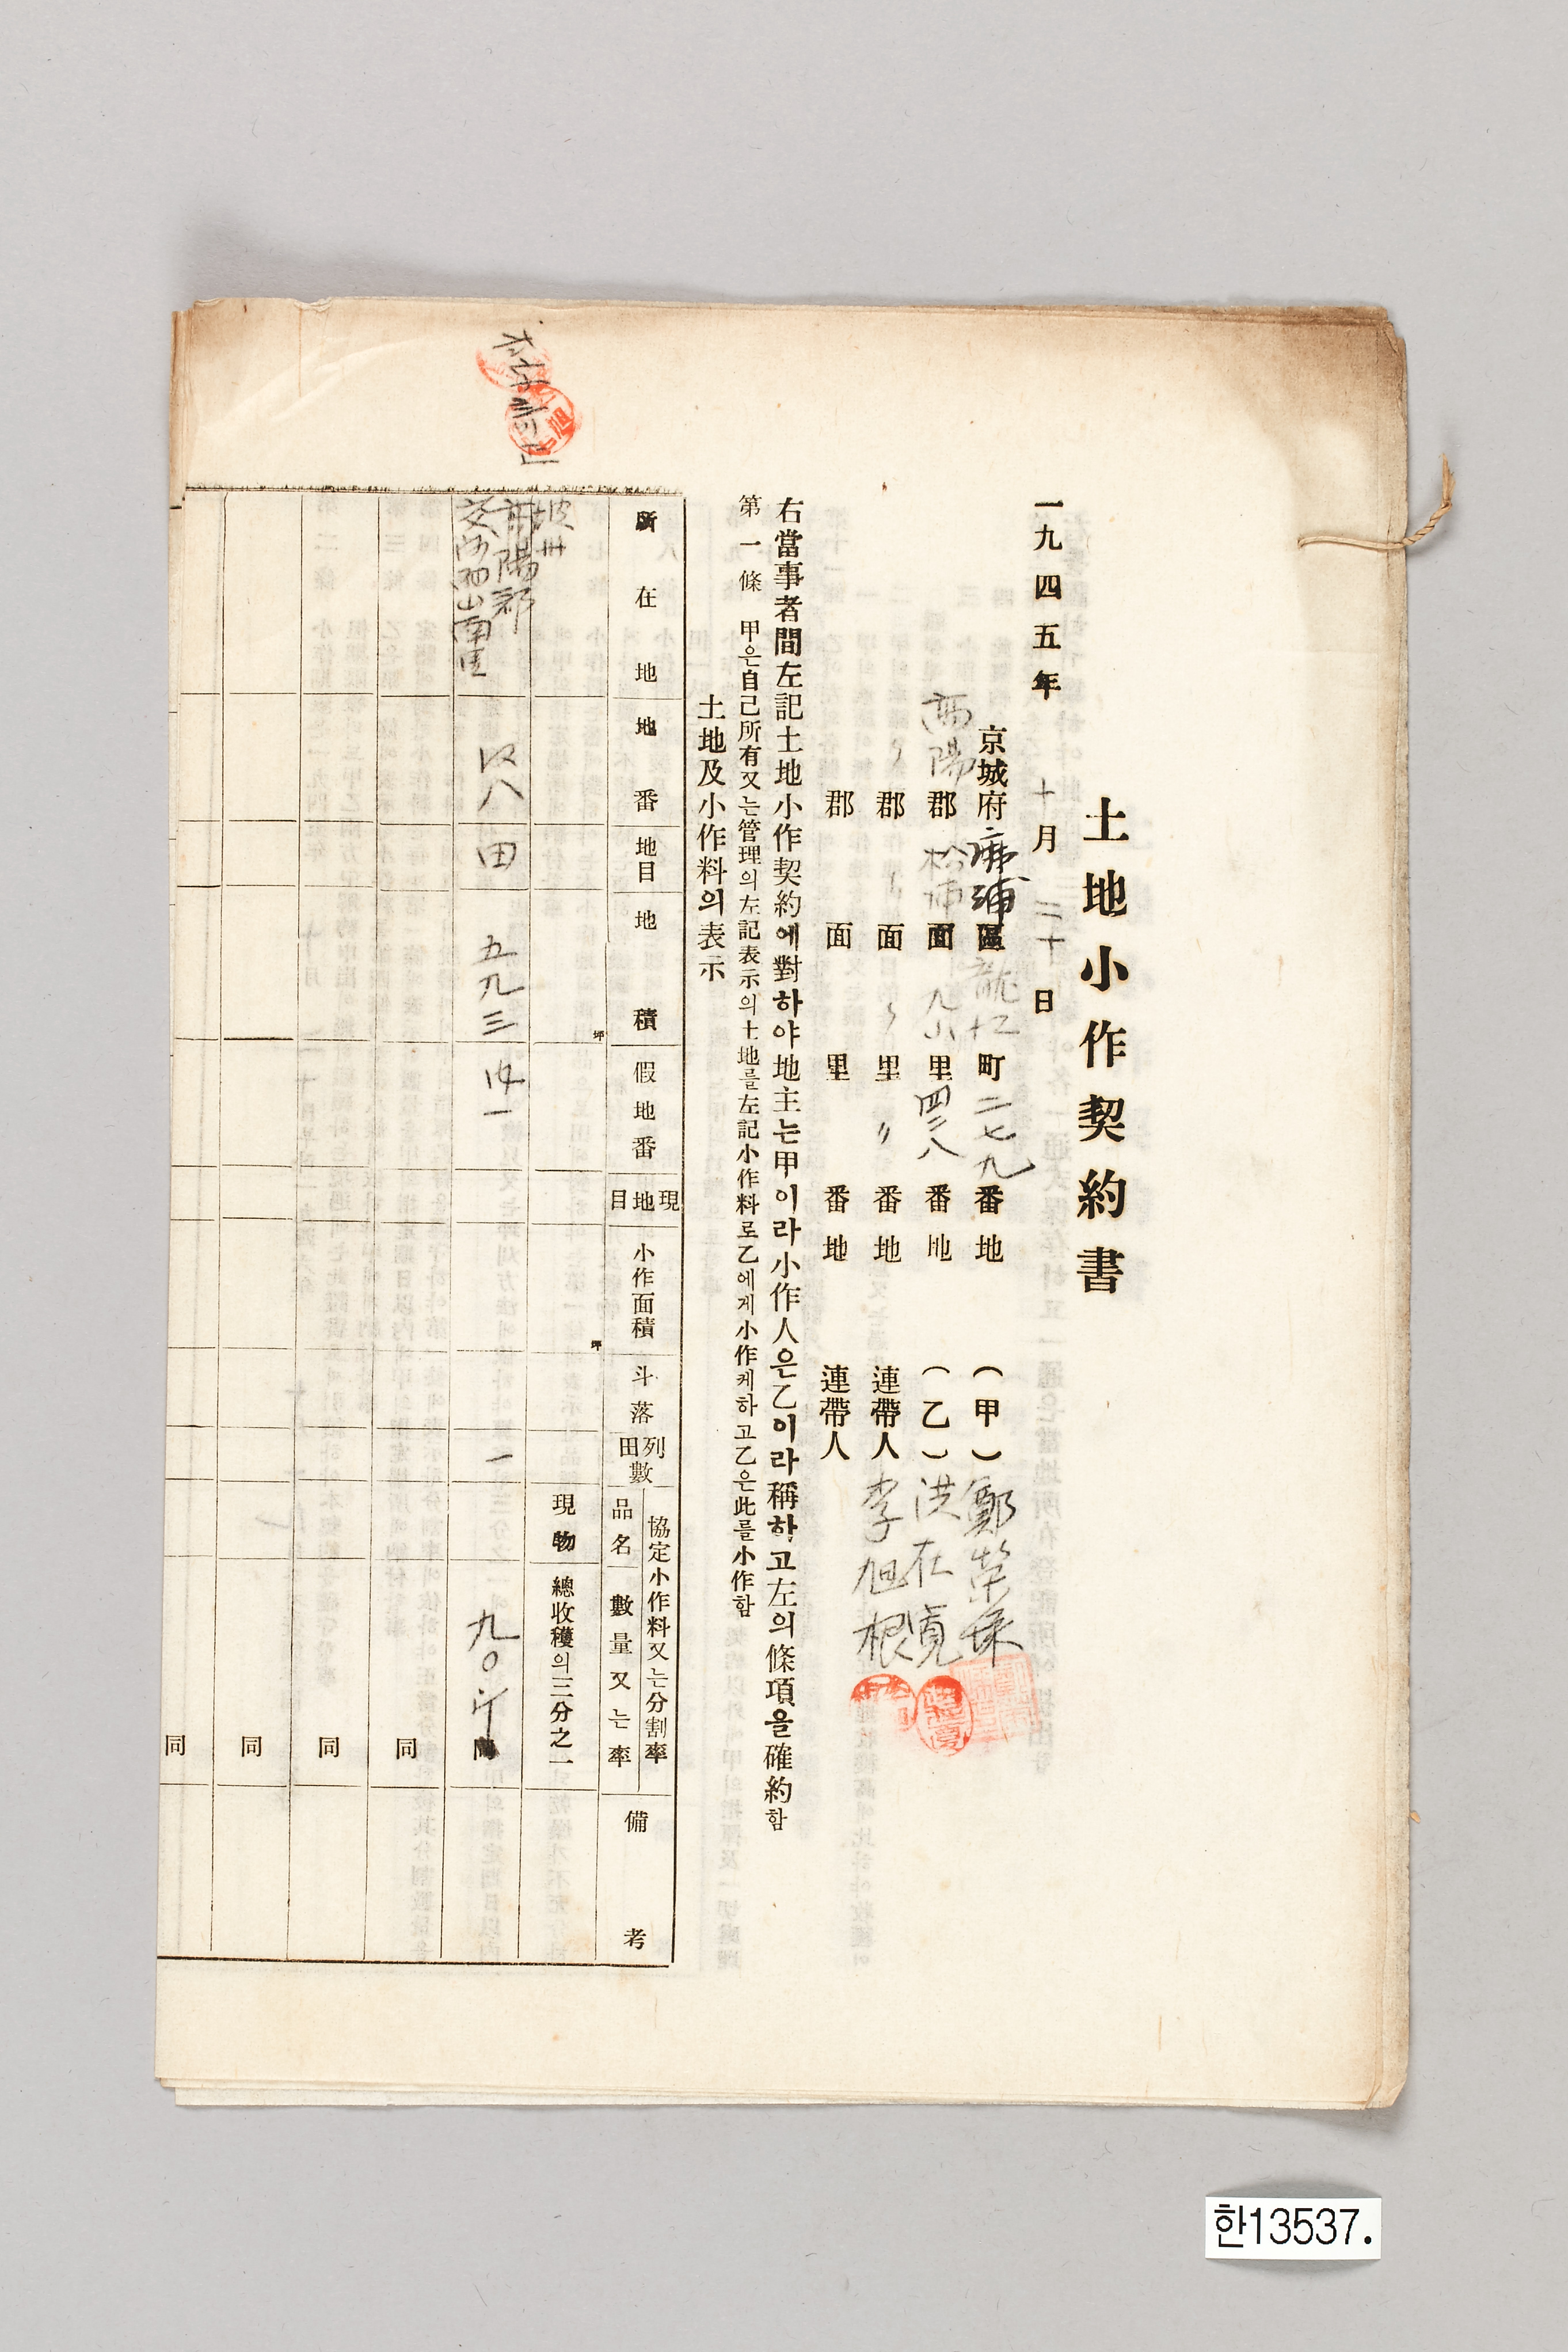 土地小作契約書
一九四五年 十月 三十日
京城府 麻浦區 龍江町 二七九番地 (甲) 鄭
高陽郡 松浦面 九山里 四三八番地 (乙) 洪在
〃郡 〃面 〃里 〃番地 連帶人 李旭根
郡 面 里 番地 連帶人
右當事者間左記土地小作契約에對하야地主는甲이라小作人은乙이라稱하고左의條項을確約함
第一條 甲은自己所有又는管理의左記表示의土地를左記小作料로乙에게小作케하고乙은此를小作함
土地及小作料의表示
所在地 地番 地目 地積 假地番 現地目 小作面積 斗落 田列數 協定小作料又는分割率 品名 數量又는率 備考
坪 坪 現物 總收穫의三分之一
坡州
郡 交河面山南里 八 田 五九三 一 一 九〇斤
同
同
同
同
한13537.